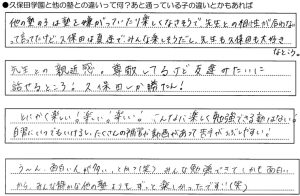 ●久保田学園と他の塾との違いって何？あと通っている子の違いとかもあれば
他の塾の子は塾を嫌がっていたり楽しくなさそうで、先生との相性が合わない
って言ってたけど、久保田は真逆で、みんな楽しそうだし、先生も久保田も大好き
なところ。
先生との親近感。尊敬してるけど友達みたいに
話せるところ！久保田しか勝たん！
とにかく楽しい！楽しい！楽しい！こんなに楽しく勉強できる塾はない！
自習にいつでもいけるし、たくさんの補習が動画があって苦手がつぶしやすい！
う〜ん、面白い人が多い、とか？(笑) みんな勉強できてしかも面白い
から、みんな静かな他の塾よりも、ずっと楽しかったです！(笑)